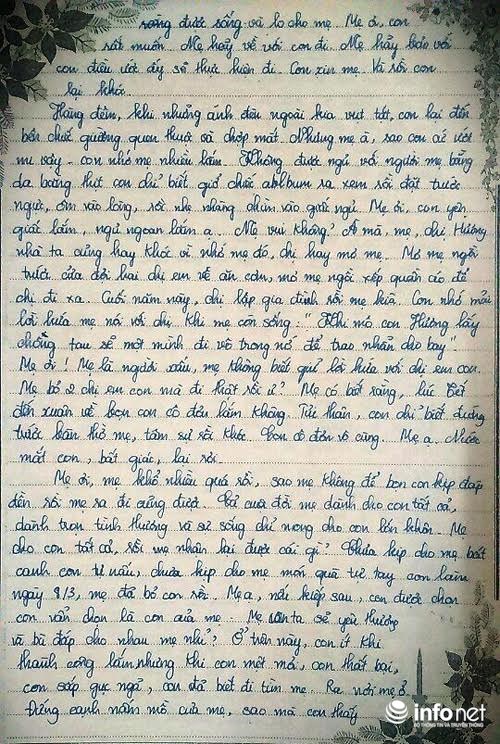 song được sống và lo cho mẹ. Mẹ ơi, con
rất muốn. Mẹ hãy về với con đi. Mẹ hãy bảo với
con điều ước ấy sẽ thực hiện đi. Con xin mẹ. Và rồi con
lại khóc.
Hàng đêm, khi những ánh đèn ngoài kia vụt tắt, con lại đến
bên chiếc giường quen thuộc và chợp mắt. Nhưng mẹ à, sao con cứ ướt
mi vậy. con nhớ mẹ nhiều lắm. Không được ngủ với người mẹ bằng
da bằng thịt con chỉ biết giở chiếc album ra xem rồi đặt trước
ngực, ôm vào lòng, rồi nhẹ nhàng chìm vào giấc ngủ. Mẹ ơi, con yên
giấc lắm, ngủ ngoan lắm ạ. Mẹ vui không? À mà, mẹ, chị Hương
nhà ta cũng hay khóc vì nhớ mẹ đó, chị hay mơ mẹ. Mơ mẹ ngồi
trước cửa đợi hai chị em về ăn cơm, mơ mẹ ngồi xếp quần áo để
chị đi xa. Cuối năm này, chị lập gia đình rồi mẹ kìa. Con nhớ mãi
lời hứa mẹ nói với chị khi mẹ còn sống: "Khi mô con Hương lấy
chồng tau sẽ một mình đi vô trong nớ để trao nhẫn cho bay".
Mẹ ơi! Mẹ là người xấu, mẹ không biết giữ lời hứa với chị em con.
Mẹ bỏ 2 chị em con mà đi thật rồi ư? Mẹ có biết rằng, lúc Tết
đến xuân về bọn con cô đơn lắm không. Tủi thân, con chỉ biết đứng
trước bàn thờ mẹ, tâm sự rồi khóc. Con cô đơn vô cùng. Mẹ ạ. Nước
mắt con, bất giác, lại rơi.
Mẹ ơi, mẹ khổ nhiều quá rồi, sao mẹ không để bọn con kịp đáp
đền rồi mẹ ra đi cũng được. Cả cuộc đời mẹ dành cho con tất cả,
dành trọn tình thương và sự sống chỉ mong cho con lớn khôn. Mẹ
cho con tất cả, rồi mẹ nhận lại được cái gì? Chưa kịp cho mẹ bát
canh con tự nấu, chưa kịp cho mẹ món quà tự tay con làm
ngày 8/3, mẹ đã bỏ con rồi. Mẹ ạ, nếu kiếp sau, con được chọn
con vẫn chọn là con của mẹ. Mẹ con ta sẽ yêu thương
và bù đắp cho nhau mẹ nhé? Ở trên này, con ít khi
thành công lắm nhưng khi con mệt mỏi, con thất bại,
con sắp gục ngã, con đã biết đi tìm mẹ. Ra nơi mẹ ở.
Đứng cạnh nấm mồ của mẹ, sao mà con thấy
infonet